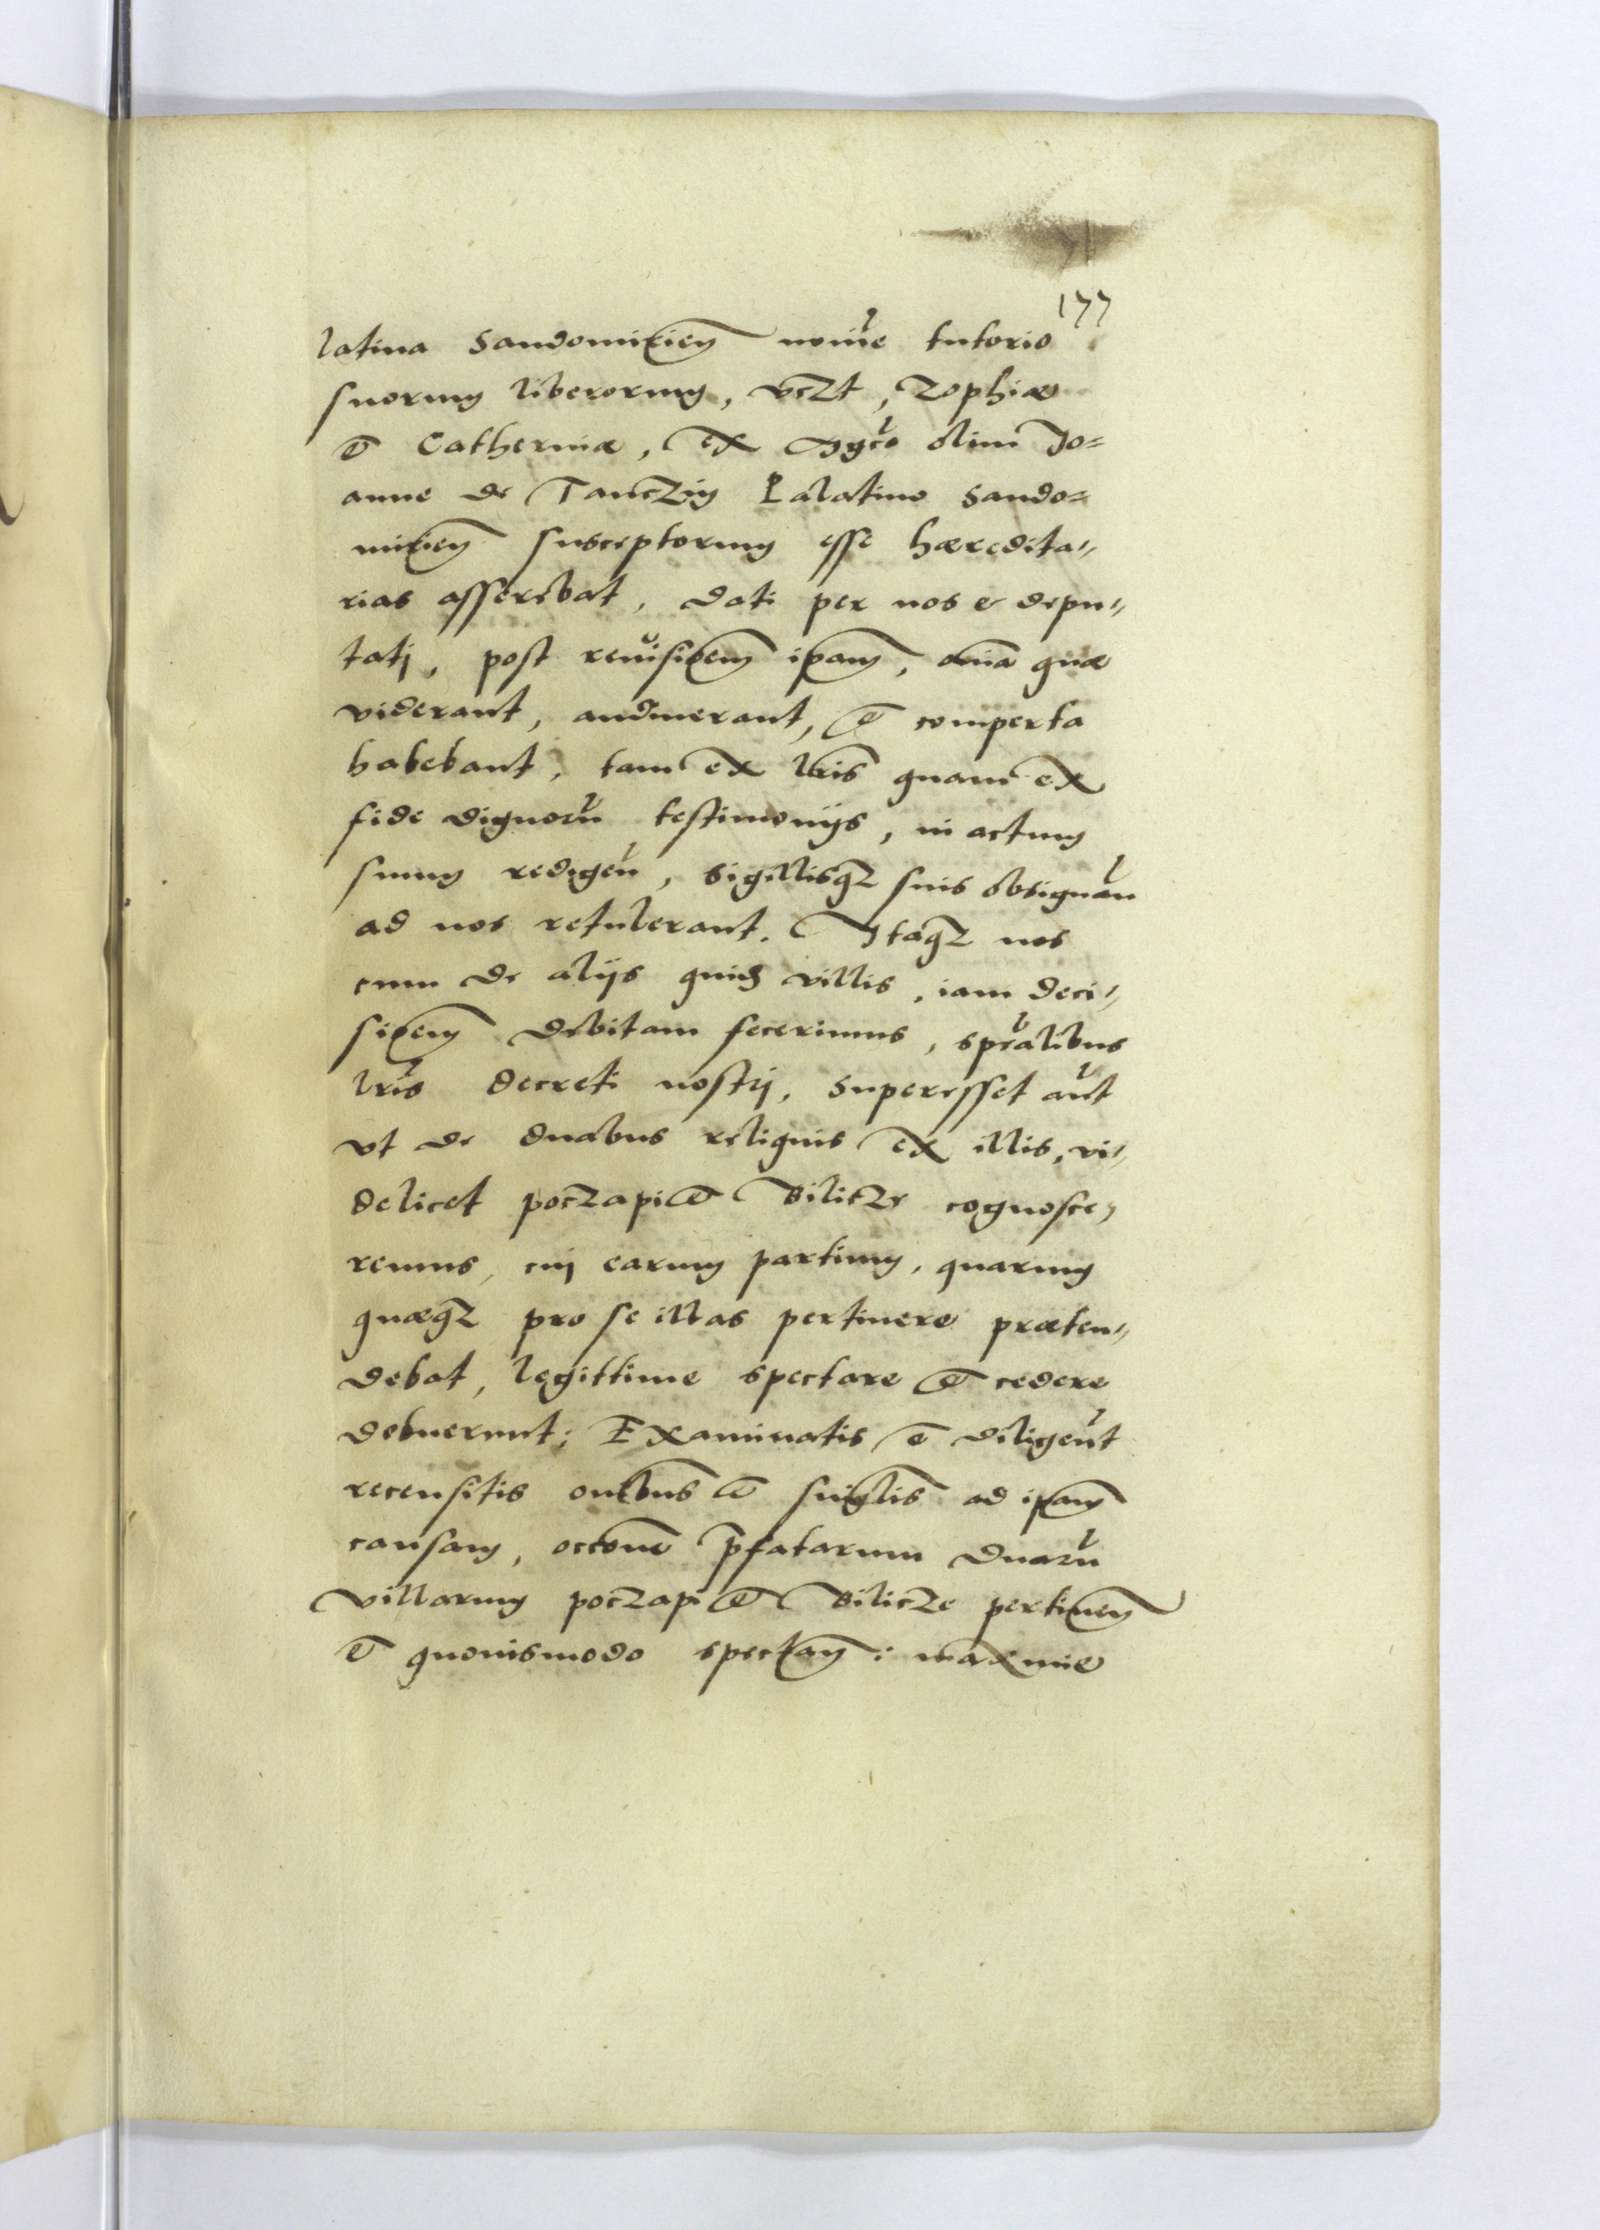 177
latina Sandomirien̄ noīe tutorio
suorum liberorum, vcꝫt, Zophiæ
et Catherinæ, ex Mgco olim Jo=
anne de Tanczin Palatino Sando=
mirien̄ susceptorum esse hæredita=
rias asserebat, dati per nos & depu=
tatj, post reuisioem̄ ipam̄, oīa quæ
viderant, audiuerant, et comperta
habebant, tam ex lr̄is quam ex
fide dignorū testimonijs, in actum
suum redigeñ, sigillisqꝫ suis obsignañ
ad nos retulerant. Itaqꝫ nos
cum de alijs quidē villis, iam deci=
sioem̄ debitam fecerimus, spēalibus
lr̄is decreti nostrj, superesset aūt
vt de duabus reliquis ex illis, vi=
delicet poczapi et Bilicze cognosce=
remus, cuj earum partium, quarum
quæqꝫ pro se illas pertinere præten=
debat, legittime spectare et cedere
debuerunt; Examinatis et diligen̄t
recensitis omībus et singlīs ad ipam̄
causam, occōne p̄fatarum duarū
villarum poczapi et Bilicze pertinen̄
et quouismodo spectan̄: maxime